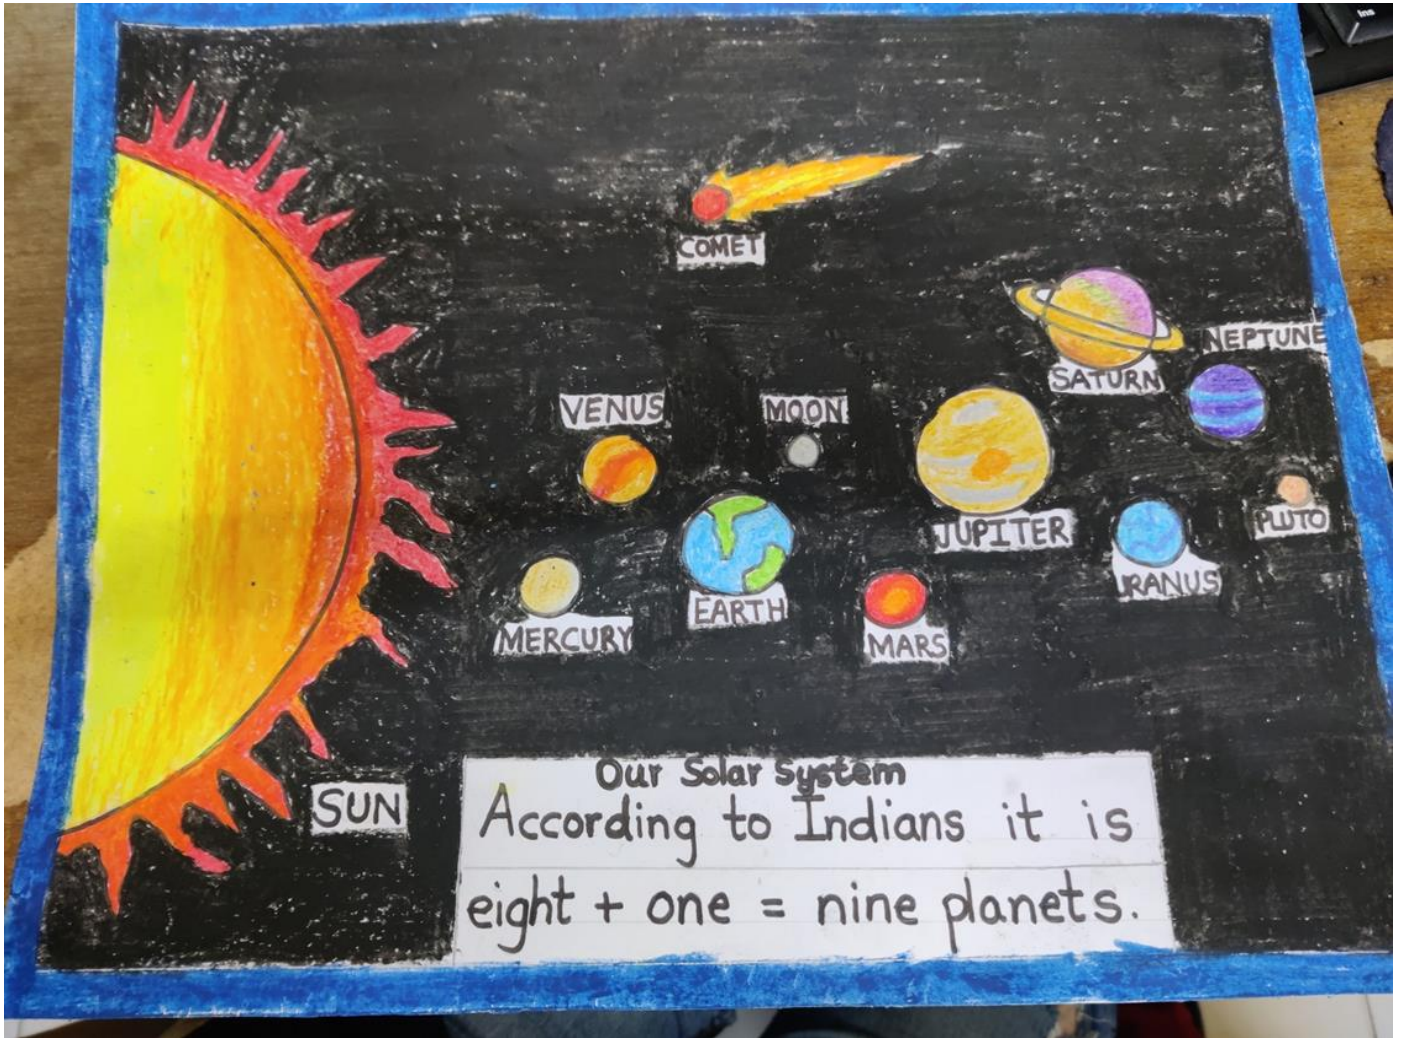 COMET
NEPTUNE
SATURN
VENUS
MOON
JUPITER
PLUTO
URANUS
EARTH
MERCURY
MARS
SUN
Our Solar System
According to Indians it is
eight + one = nine planets.
Ins